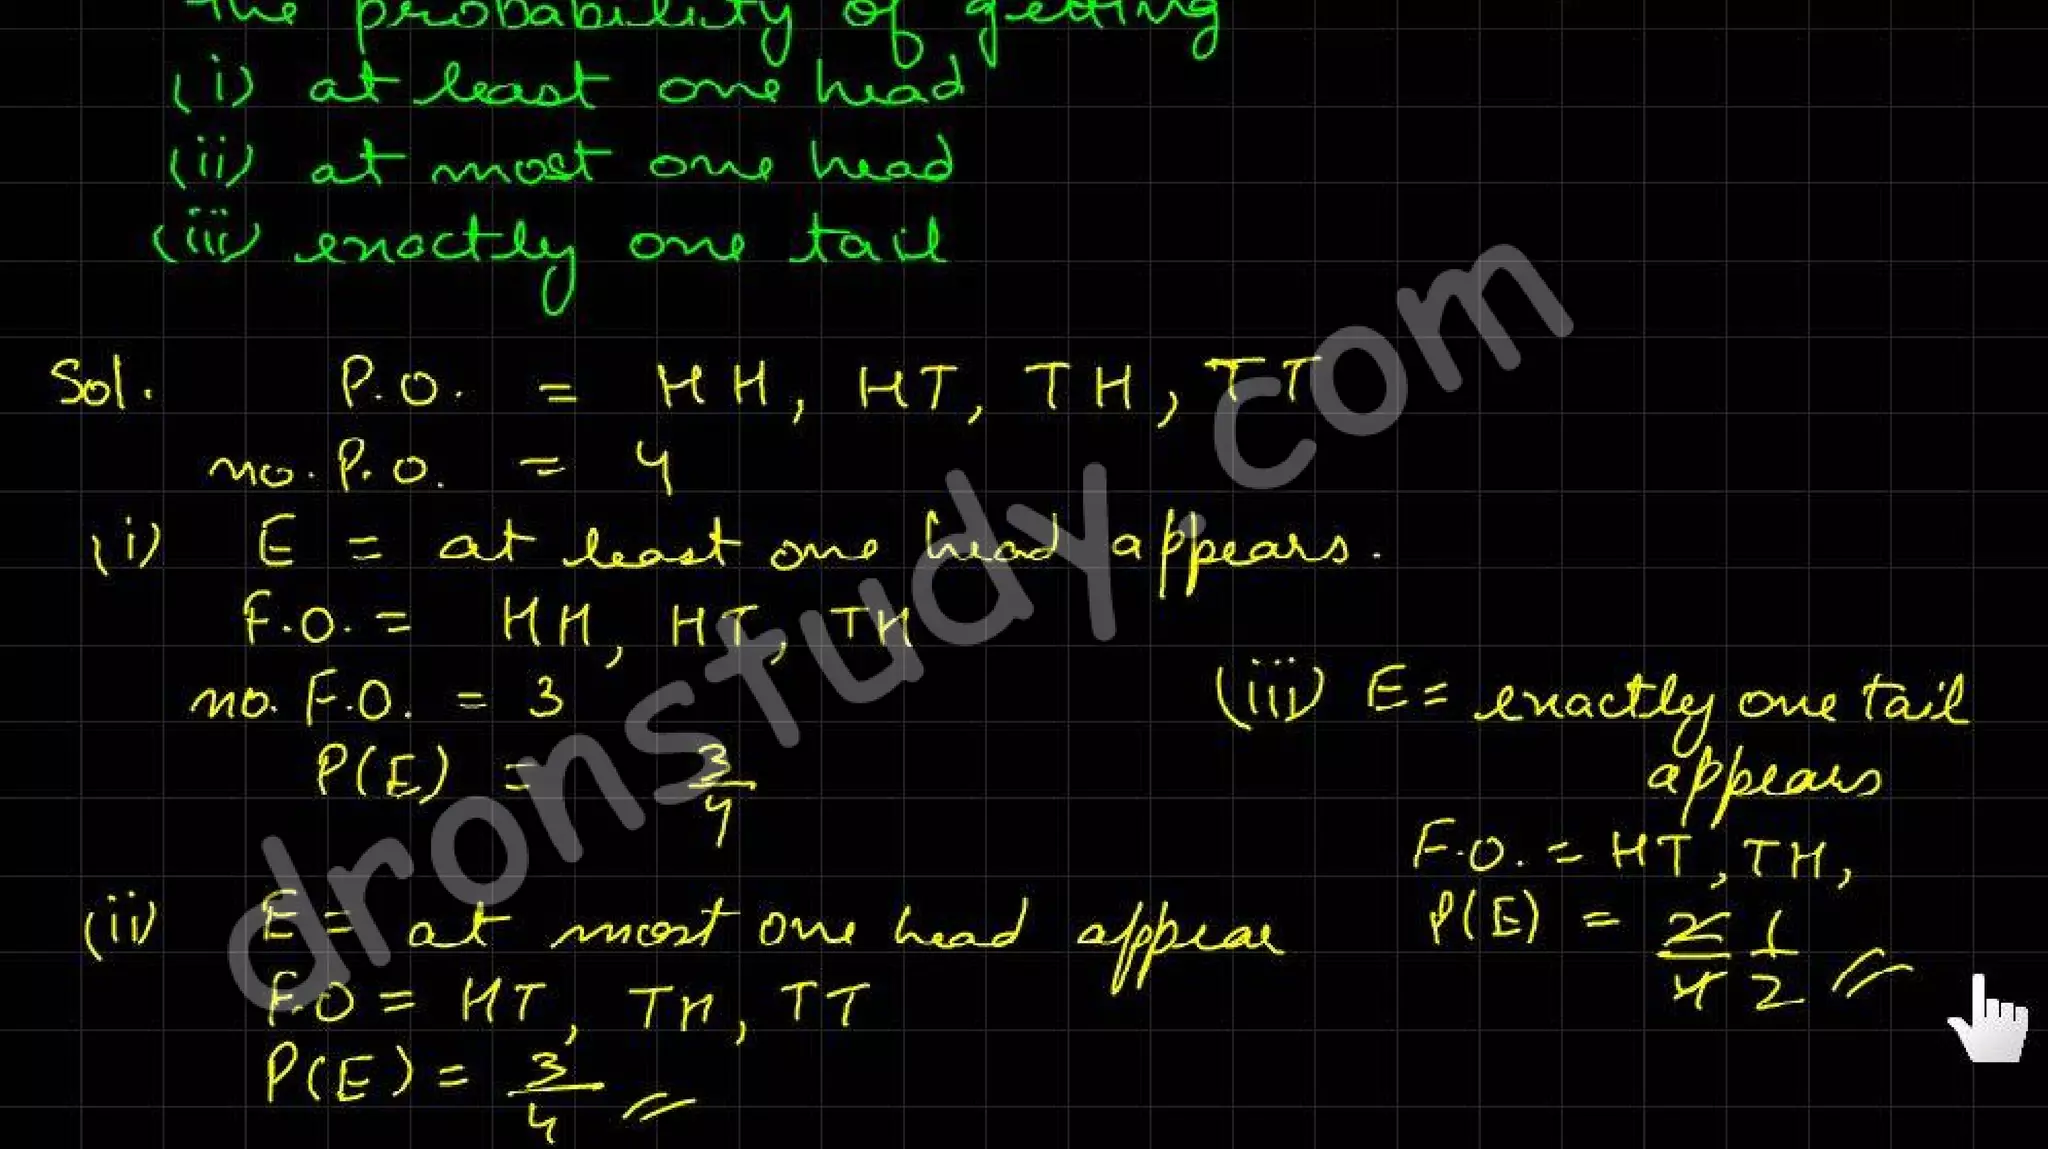 the probability of getting
(i) at least one head
(ii) at most one head
(iii) exactly one tail
Sol. P.O. = HH, HT, TH, TT
no. P.O. = 4
(i) E = at least one head appears.
F.O. = HH, HT, TH
no. F.O. = 3
P(E) = 3/4
(ii) E = at most one head appear
F.O = HT, TH, TT
P(E) = 3/4
(iii) E = exactly one tail
appears
F.O. = HT, TH,
P(E) = 2/4 1/2
dronstudy.com